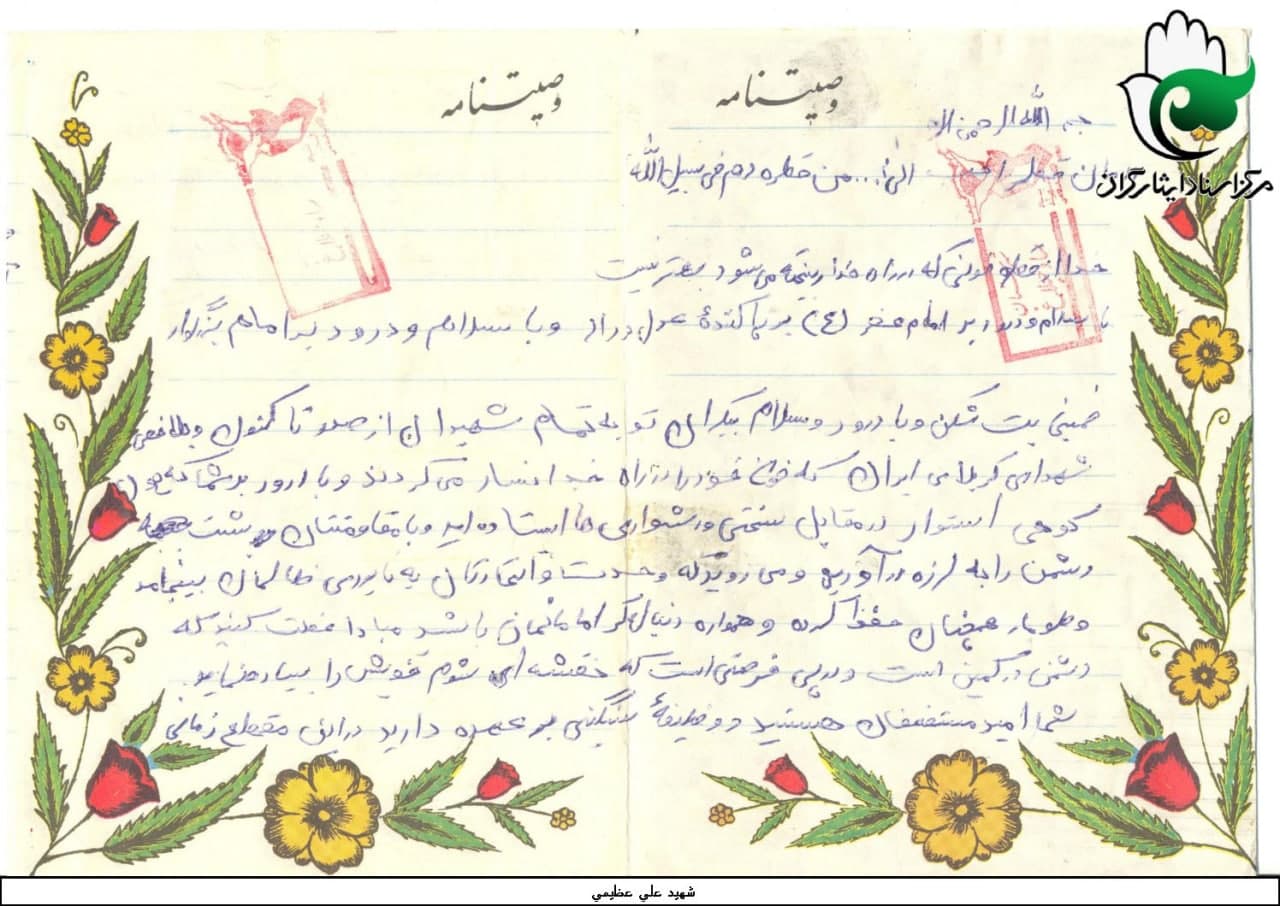 وصیتنامه
وصیتنامه
مرکز اسناد ایثارگران
بسم الله الرحمن الر
الی ا... من قطره دم فی سبیل الله
خدا از قطره خونی که در راه خدا ریخته می‌شود بهتر نیست
با سلام و درود بر امام عصر (ع) بر پا کنندهٔ عدل و داد و با سلام و درود بر امام بزرگوار
خمینی بت شکن و با درود و سلام بیکران تو به تمام شهیدان از صدر تا کنون و
شهدای کربلای ایران که خون خود را در راه خدا نثار می کردند و با درود بر شما که چون
کوهی استوار در مقابل سختی و دشواری ها ایستاده اید و با مقاومتتان پشت
دشمن را به لرزه در آورید و می رود که وحدت و اتحادتان به نابودی ظالمان بینجامد
همچنان حفظ کرده و همواره دنباله‌گر امامانمان باشید مبادا غفلت کنید که
دشمن در کمین است و در پی فرصتی است که نقشه ای شوم خویش را پیاده نماید
شما امید مستضعفان هستید و وظیفهٔ سنگینی بر عهده دارید در این مقطع زمانی
شهيد علي عظيمي